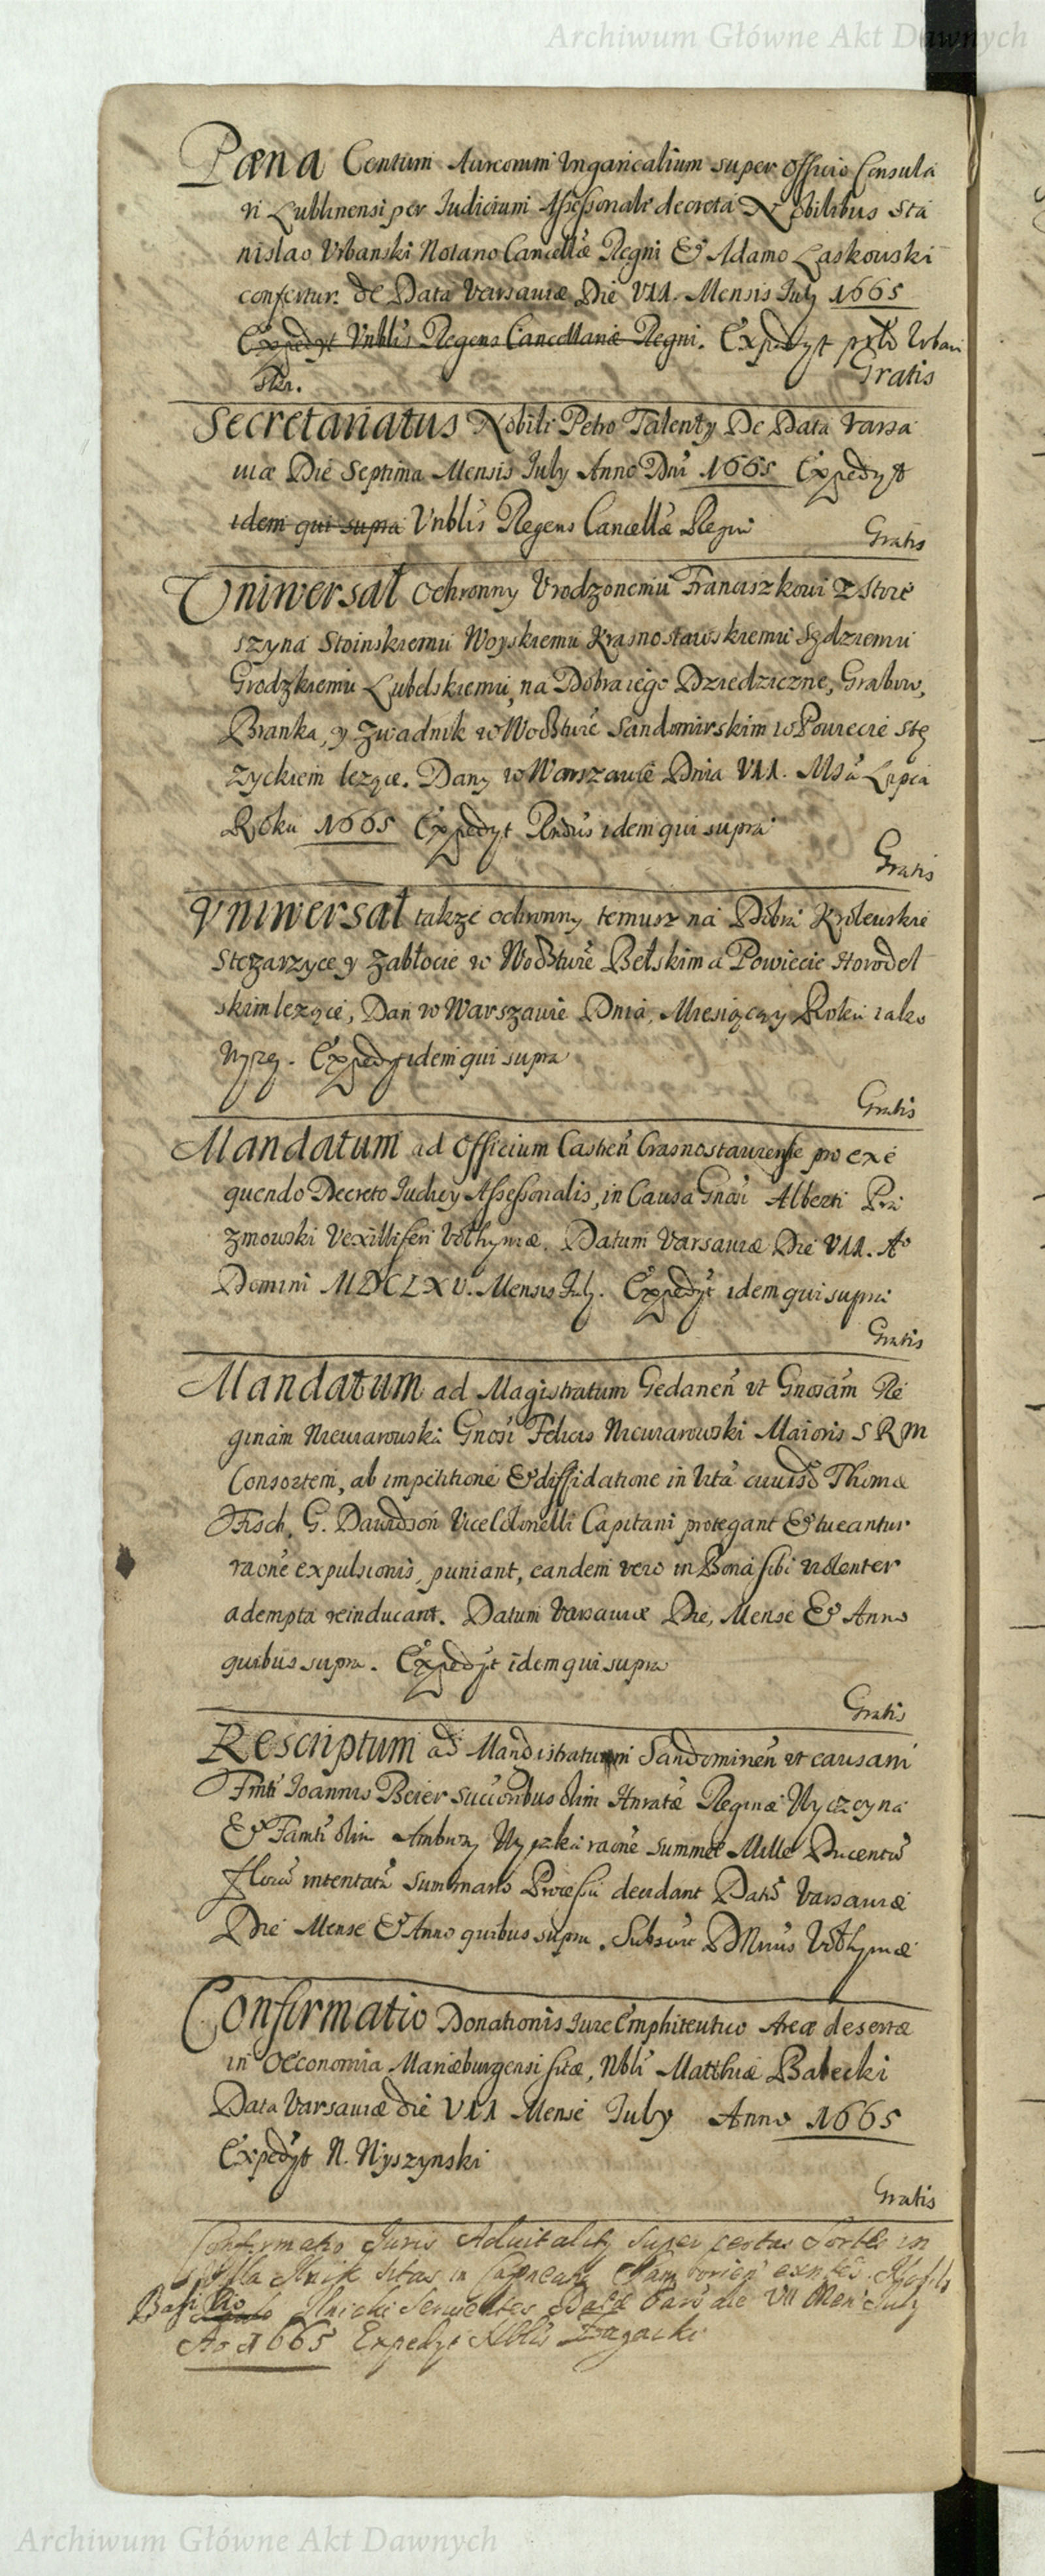 Archiwum Główne Akt Dawnych
Pæna Centum Aureorum Ungaricalium super Officio Consula
ri Lublinensi per Iudicium Assessoriale decreta Nobilibus Sta
nislao Urbanski Notario Cancellæ Regni & Adamo Laskowski
confertur. de Data Varsaviæ Die VII. Mensis July 1665
Expedyt Vnblis Regens Cancellariæ Regni. Expedyt Urban
ski. Gratis
Secretariatus Nobili Petro Talenty De Data Varsa
viæ Die Septima Mensis July Anno Dni 1665 Expedyt
idem qui supra Vnblis Regens Cancellæ Regni
Gratis
Uniwersał Ochronny Urodzonemu Franciszkowi Z Store
szyna Stoinskiemu Woyskiemu Krasnostawskiemu Sędziemu
Grodzkiemu Lubelskiemu, na Dobra iego Dziedziczne, Grabow,
Branka, y Zwadnik w Wodztwie Sandomirskim w Powiecie Stę
życkiem leżące. Dany w Warszawie Dnia VII. Msca Lipca
Roku 1665 Expedyt Rndus idem qui supra
Gratis
Vniwersał także ochronny temusz na Dobra Krolewskie
Stężarzyce y Zabłocie w Wodztwie Bełskim a Powiecie Horodel
skim leżące, Dan w Warszawie Dnia, Miesiąca y Roku iako
wyżey. Expedyt idem qui supra
Gratis
Mandatum ad Officium Castren Crasnostaviense pro exe
quendo Decreto Iudicy Assessorialis, in Causa Gnosi Alberti Pra
zmowski Vexilliferi Volhyniæ. Datum Varsaviæ Die VII. Ao
Domini MDCLXV. Mensis July. Expedyt idem qui supra
Gratis
Mandatum ad Magistratum Gedanen ut Gnosam Re
ginam Niewiarowska Gnosi Felicis Niewiarowski Maioris S R M
Consortem, ab impetitione & diffidatione in Vita cuiusd Thomæ
Fisch, G. Davidson Vicecolonelli Capitani protegant & tueantur
raone expulsionis, puniant, eandem vero in Bona sibi violenter
adempta reinducant. Datum Varsaviæ Die, Mense & Anno
quibus supra. Expedyt idem qui supra
Gratis
Rescriptum ad Mandistratum Sandomirien ut causam
Fmti Ioannis Beier Succoribus olim Hnratæ Reginæ Wyczyna
& Famti olim Ambrozy raone summæ Mille Ducentor
flor intentata summario Processu decidant Datum Varsaviæ
Die Mense & Anno quibus supra. Volhyniæ
Confirmatio Donationis Iure Emphiteutico Areæ desertæ
in Oeconomia Mariæburgensi sitæ, Nbli Matthiæ Babecki
Data Varsaviæ die VII Mense July Anno 1665
Expedyt N. Wyszynski
Gratis
Confirmatio Juris Advitality super certas Sortes in
Villa sitas in Capneatu Samborien
Basilio Ilnicki Servientes Data Vars die VII Men July
Ao 1665 Expedyt Nblis Zagacki
Archiwum Główne Akt Dawnych